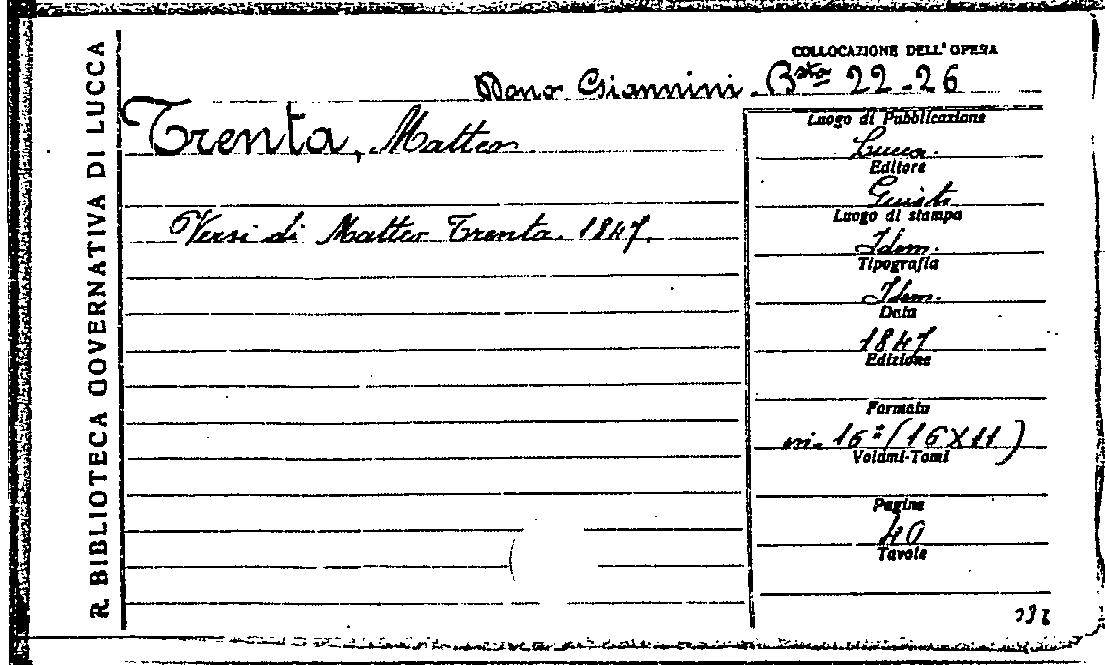 R. BIBLIOTECA GOVERNATIVA DI LUCCA
COLLOCAZIONE DELL'OPERA
Dono Giannini. Bsta 22-26
Trenta, Matteo
Versi di Matteo Trenta. 1847.
Luogo di Pubblicazione
Lucca.
Editore
Giusti
Luogo di stampa
Idem.
Tipografia
Idem.
Data
1847
Edizione
Formato
in-16º (16X11)
Volumi-Tomi
Pagine
40
Tavole